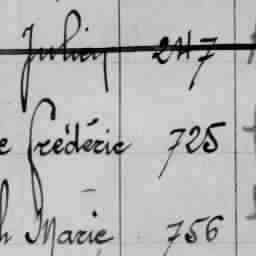 Julien 247
Frédéric 725
Marie 756